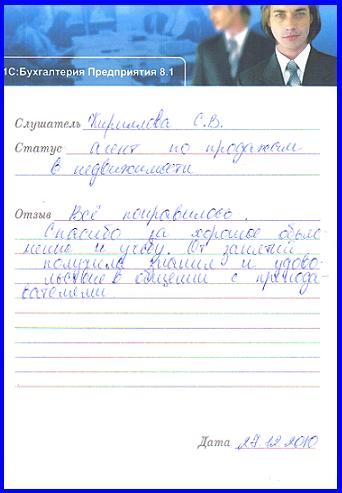 1С:Бухгалтерия Предприятия 8.1
Слушатель Кириллова С.В.
Статус агент по продажам
в недвижимости
Отзыв Всё понравилось.
Спасибо за хорошее объяс-
нение и учебу. От занятий
получила знания и удово-
льствие в общении с препода-
вателями.
Дата 27.12.2010